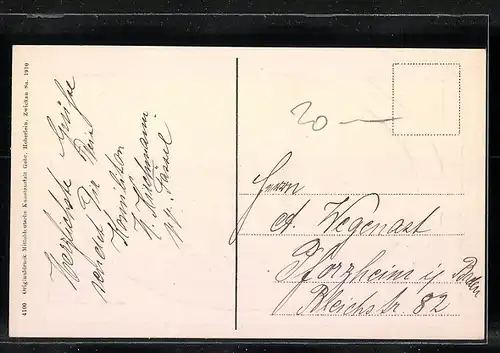 4100 Originaldruck Mitteldeutsche Kunstanstalt Gebr. Heberlein, Zwickau Sa. 1910
Herzlichste Grüße
sendet Dir Dein
zg. Cassel
20 —
Herrn
A. Wegenast
Pforzheim i/ Baden
Bleichstr. 82